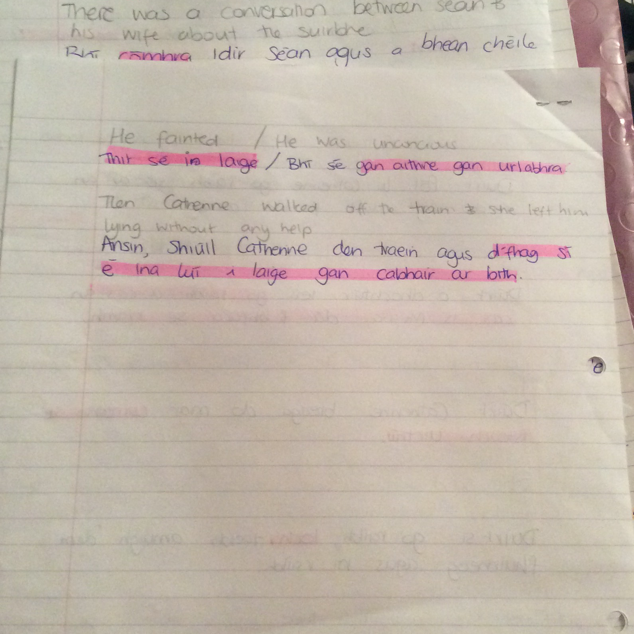 There was a conversation between seán &
his wife about the suirbhe
Bhí comhra idir Seán agus a bhean chéile
He fainted / He was unconcious
Thit sé in laige / Bhí sé gan aithne gan urlabhra
Then Catrenne walked off the train & she left him
lying without any help
Ansin, Shiúil Catrenne den traein agus d'fhag sí
é ina luí i laige gan cabhair ar bith.